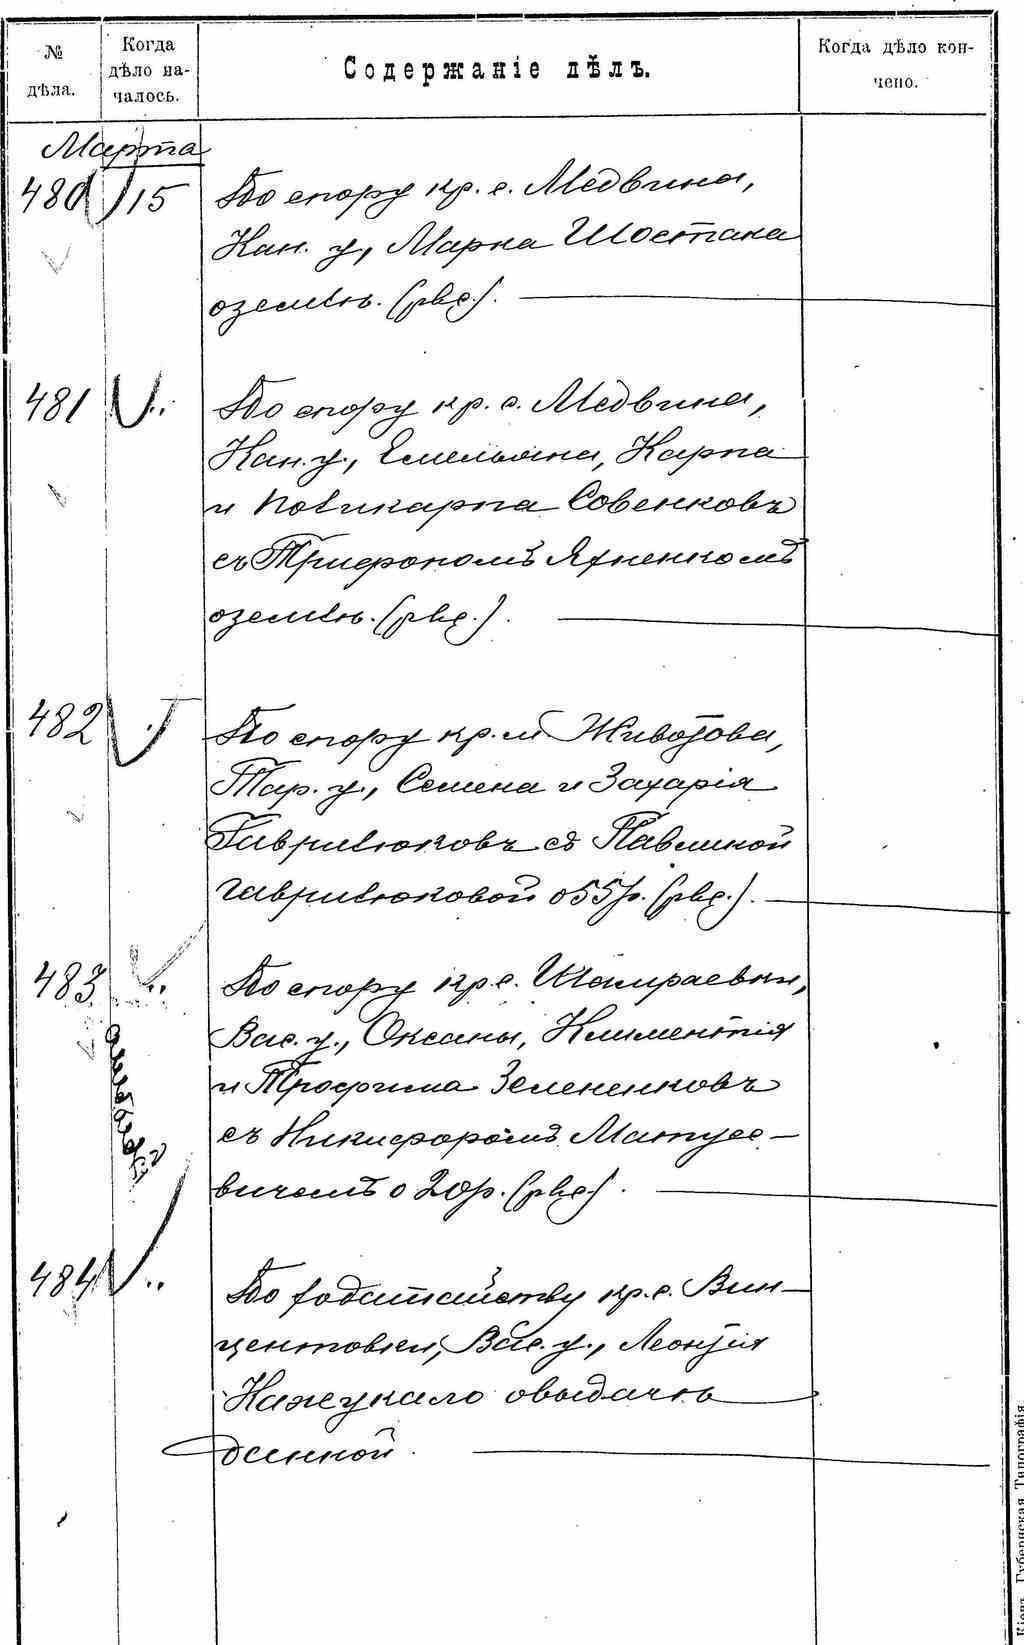 № дѣла.
Когда дѣло на-
чалось.
Содержаніе дѣлъ.
Когда дѣло кон-
чено.
Марта
480 15 По спору кр. с. Медвина,
Кан. у, Марка Шостака
о землѣ.
481 По спору кр. с. Медвина,
Кан. у., Емельяна, Карпа
и Поликарпа Совенковъ
съ Трифономъ Яхненкомъ
о землѣ.
482 По спору кр. м Животова,
Тар. у., Семена и Захарія
Гаврилюковъ съ Павлиной
Гаврилюковой о 55 р.
483 По спору кр. с. Шамраевки,
Вас. у., Оксаны, Климентія
и Трофима Зелененковъ
съ Никифоромъ Матусе-
вичемъ о 20 р.
484 По ходатайству кр. с. Вин-
центовки, Вас. у., Леонтія
о выдачѣ
Кіевъ. Губернская Типографія.